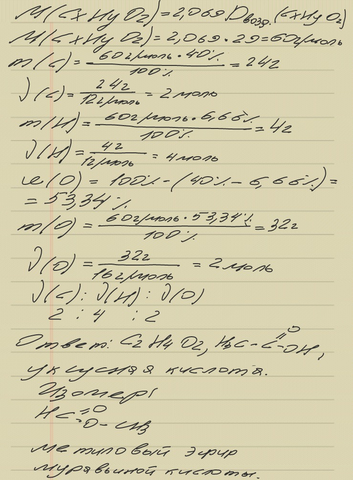 M(CxHyO2)=2,069 Dвозд.(CxHyO2)
M(CxHyO2)=2,069·29=60г/моль
m(C)= 60г/моль·40% / 100% =24г
ν(C)= 24г / 12г/моль = 2моль
m(H)= 60г/моль·6,66% / 100% =4г
ν(H)= 4г / 12г/моль =4моль
ω(O)=100%-(40%-6,66%)=
=53,34%
m(O)= 60г/моль·53,34% / 100% =32г
ν(O)= 32г / 16г/моль = 2моль
ν(C):ν(H):ν(O)
2 : 4 : 2
Ответ: C2H4O2, H3C-C=O-OH,
уксусная кислота.
Изомер:
HC=O-O-CH3
метиловый эфир
муравьиной кислоты.